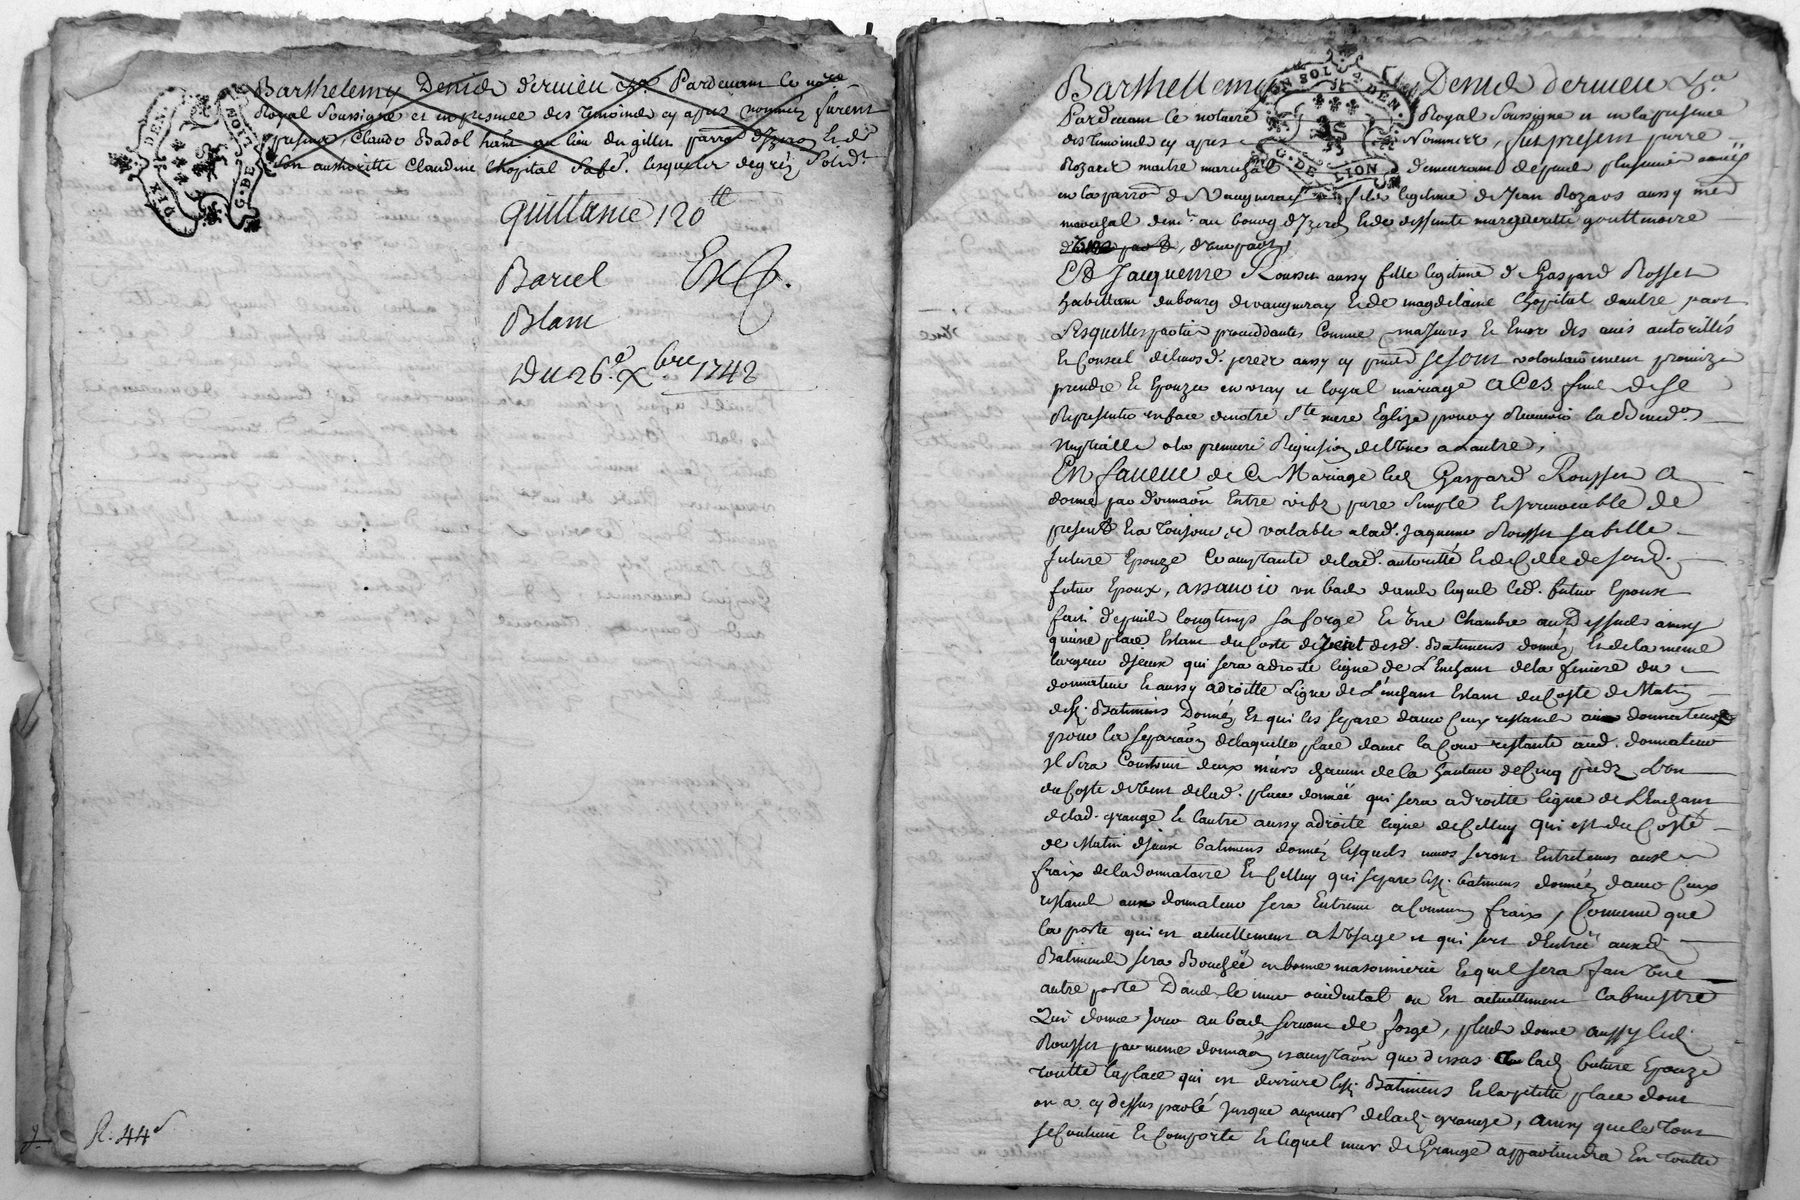 Barthelemy Denis d'ervieu &a Pardevant le nore
Royal Soussigné et en presence des temoins cy apres nommez furent
presens, Claude Badol hant au lieu de gillet parre d'Izeron Et ds
Son authoritté Claudine Chopital Sa fe. lesquels de grés Solidt
DIX DEN. G. DE LION
quittance 120 tt
Bariel Exp.
Blanc
Du 26.e Xbre 1742
R. 44 s
Barthellemy Denis dervieu &a
UN SOL 4 DEN. G. DE LION
Pardevant le notaire Royal Soussigné et en la presence
des temoins cy apres Nommez, fut present pierre
Rozart maitre marechal demeurant depuis plusieurs années
en la parro de Vaugneray fils legitime de Jean Rozard aussy me
marechal demt. au bourg d'Izeron Et de deffunte margueritte gouttenoire
d'une part,
Et Jacqueme Rousset aussy fille legitime de Gaspard Rosset
habittant du bourg de vaugneray Et de magdelaine Chopital d'autre part
Lesquelles parties proceddantes comme majeures Et Encor des avis autorittés
Et Conseil de leurs d. peres aussy cy pnts Se Sont volontairement promis de
prendre Et Epouzer en vray et loyal mariage a Ces fins de Se
Representer en face de notre Ste mere Eglize pour y Recevoir la Benedon
Nuptialle a la premiere Requisition de l'Une a L'autre,
En faveur de Ce Mariage led. Gaspard Rousset a
donné par donnaon Entre vifs pure Simple Et Irrevocable de
present Et a toujours et valable a lad. Jaqueme Rousset Sa fille
future Epouze Et acceptante de lad. autoritté Et de Celle de Sond.
futur Epoux, assavoir un bas dans lequel led. futur Epoux
fait depuis longtemps Sa forge Et Une Chambre au Dessus ainsy
qu'une place Estant du Costé de Vent desd. Batimens donnés Et de la meme
largeur d'Iceux qui Sera a droite ligne de L'Enchant de la feniere du
donnateur Et aussy a droitte Ligne de L'Enchant Estant du Costé de Matin
desd. Batimens Donnés Et qui les Separe d'avec Ceux restants au donnateur
pour la Separaon de laquelle place d'avec la Cour restante aud. donnateur
Il Sera Construit deux murs chacun de la hauteur de Cinq pieds L'Un
du Costé de Vent de lad. place donnée qui Sera a droitte ligne de L'Enchant
de lad. grange Et l'autre aussy a droite ligne de Celluy qui est du Costé
de Matin d'Iceux batimens donnés lesquels murs Seront Entretenus aux
fraix de la donnataire Et Celluy qui Separe lesd. batimens donnés d'avec Ceux
restants au donnateur Sera Entretenu a Communs fraix, Comme que
la porte qui est actuellement a l'Usage et qui Sert d'Entrée auxd.
Batimens Sera Bouchée en bonne massonnerie Et qu'il Sera fait Une
autre porte Dans le mur occidental ou Est actuellement
Qui donne Jour au bas Servant de forge, plus donne aussy led.
Rousset par meme donnaon et acceptaon que dessus a lad. future Epouze
toutte la place qui est derriere lesd. Batimens Et la petitte place dont
on a cy dessus parlé Jusque au mur de lad. grange, ainsy que le tout
Se Contient Et Comporte Et lequel mur de Grange appartiendra En toutte